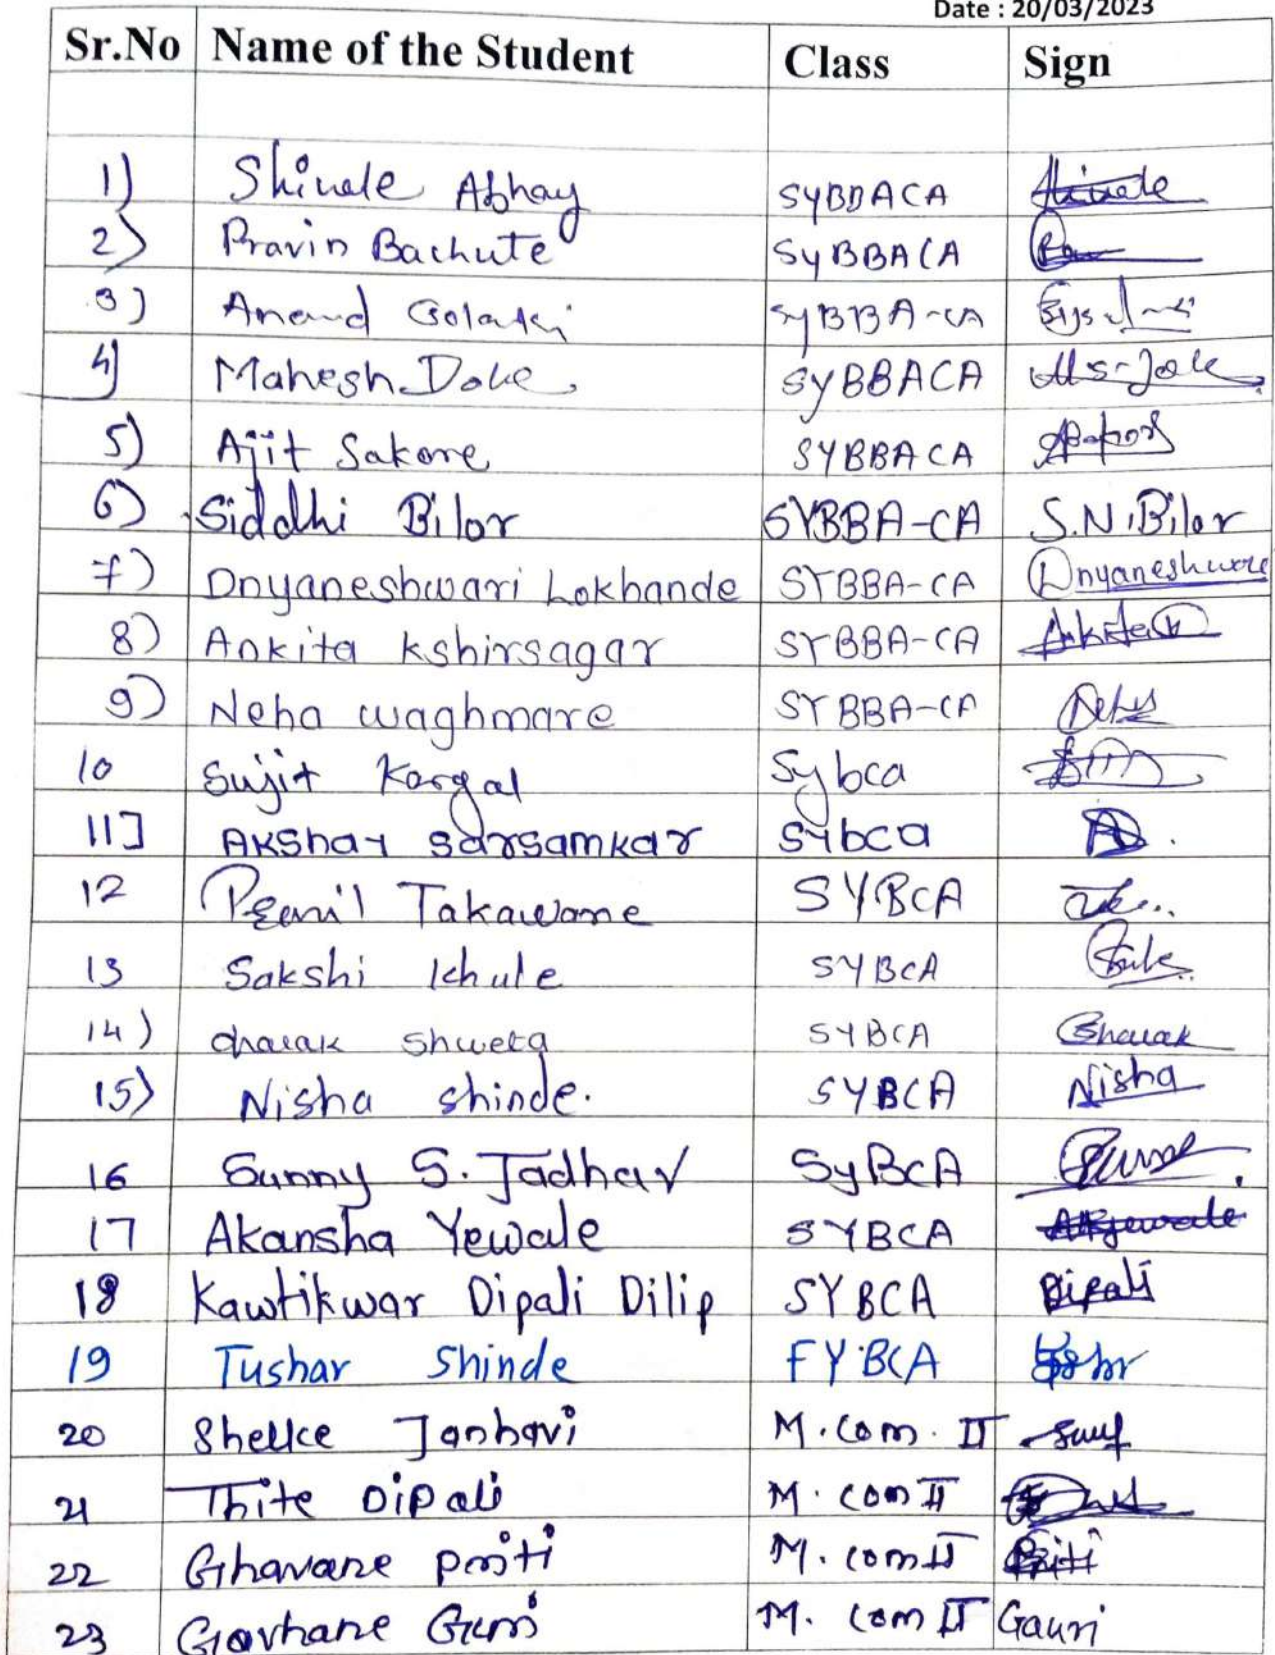 Date : 20/03/2023
Sr.No Name of the Student Class Sign
1) Shinde Abhay SYBBACA
2) Pravin Bachute SyBBACA
3) Anand SyBBA-CA
4) Mahesh Doke SYBBACA
5) Ajit Sakore SYBBACA
6) Siddhi Bilor SYBBA-CA S.N.Bilor
7) Dnyaneshwari Lokhande SYBBA-CA
8) Ankita kshirsagar SYBBA-CA Ankita
9) Neha waghmare SYBBA-CA
10 Sujit Kargal Sybca
11] Akshay Sarsamkar Sybca
12 Takawane SYBCA
13 Sakshi Khule SYBCA
14) Shweta SYBCA
15) Nisha Shinde. SYBCA Nisha
16 Sunny S. Jadhav SyBCA
17 Akansha Yewale SYBCA
18 Kawtikwar Dipali Dilip SYBCA Dipali
19 Tushar Shinde FYBCA
20 Shelke Janhavi M.Com. II
21 Thite Dipali M. Com II
22 Ghavane priti M. Com II Priti
23 Gavhane M. Com II Gauri